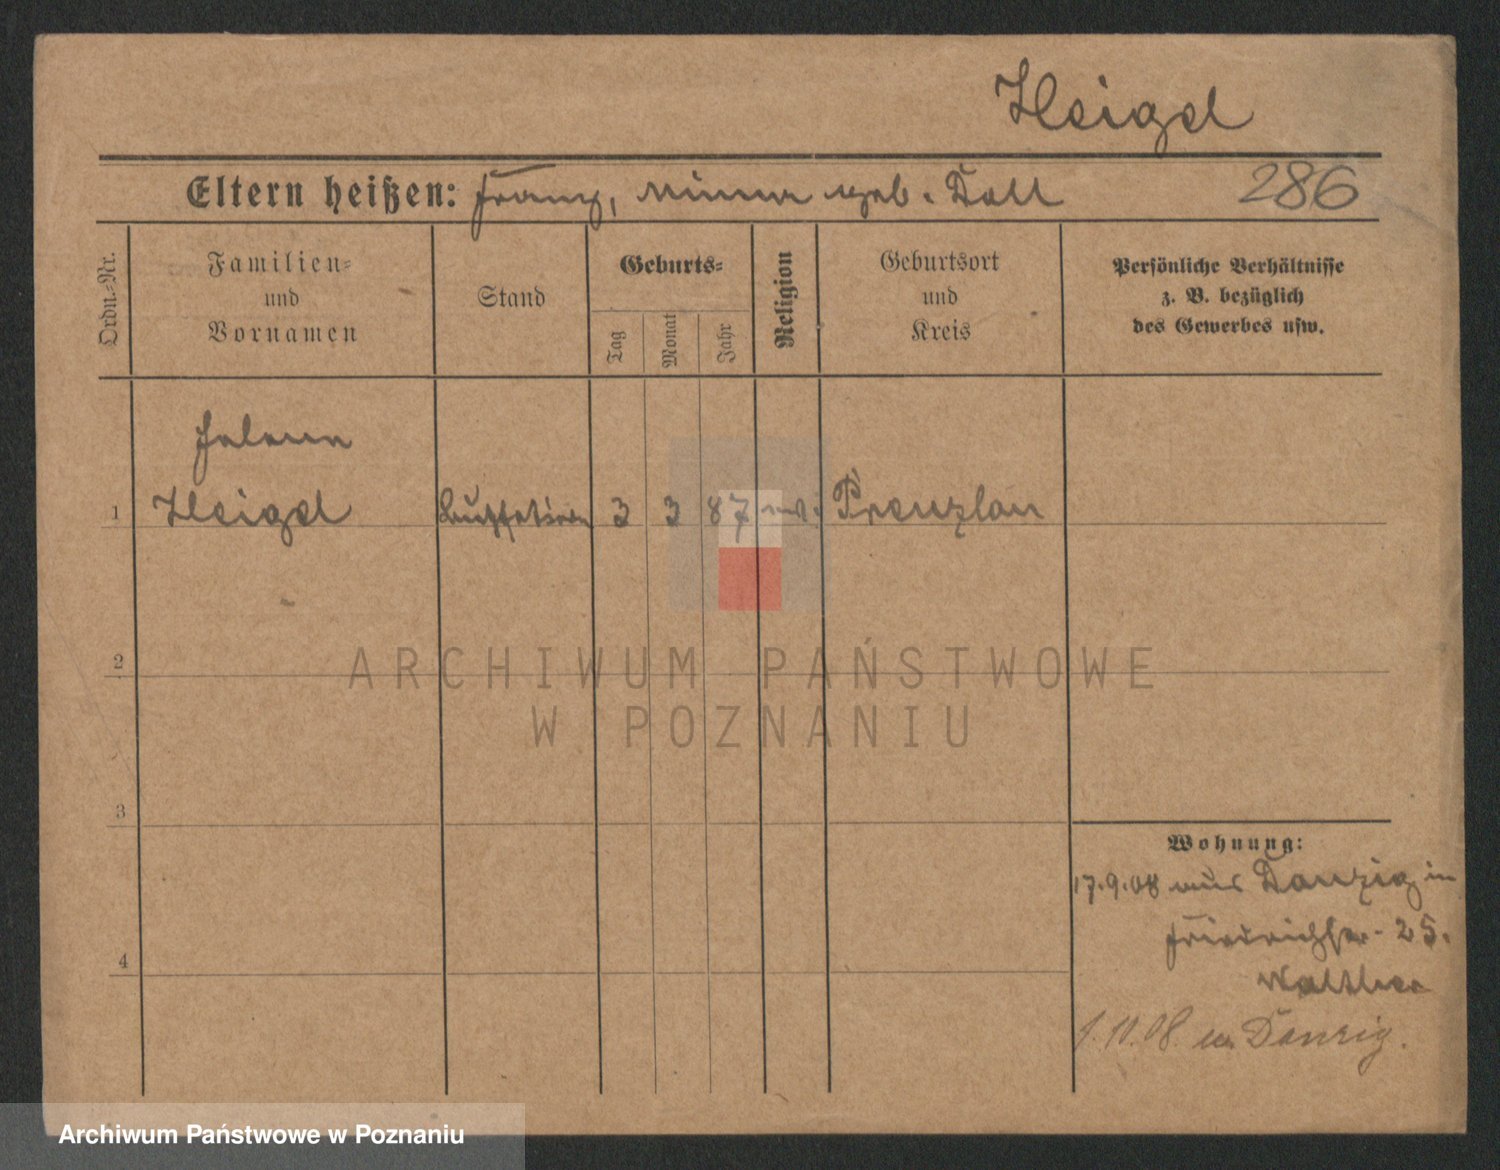 Heigel
Eltern heißen: Franz, Minna geb. Doll
286
Ordn.-Nr.
Familien-
und
Vornamen
Stand
Geburts-
Tag
Monat
Jahr
Religion
Geburtsort
und
Kreis
Persönliche Verhältnisse
z. B. bezüglich
des Gewerbes usw.
Helene
1 Heigel Buffetière 3 3 87 Prenzlau
2
3
4
Wohnung:
17.9.08 aus Danzig in
Friedrichstr. 25.
Walther
1.10.08. n. Danzig.
ARCHIWUM PAŃSTWOWE
W POZNANIU
Archiwum Państwowe w Poznaniu